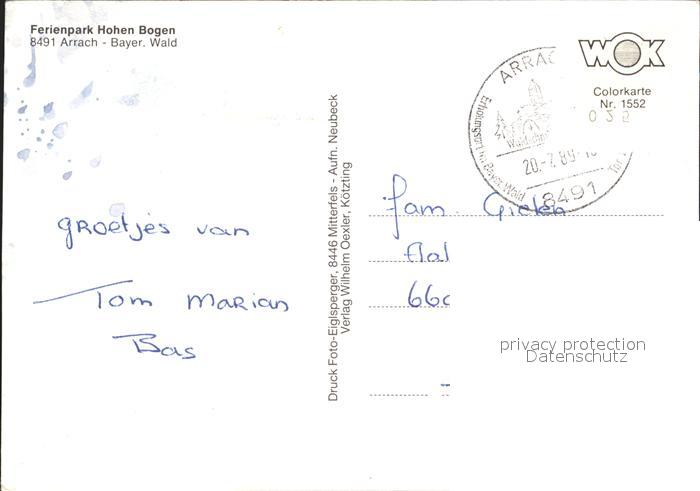 Ferienpark Hohen Bogen
8491 Arrach - Bayer. Wald
WOK
Colorkarte
Nr. 1552
ARRAC
Erholungsort im Bayer. Wald
20.-7.89-
8491
Druck Foto-Eiglsperger, 8446 Mitterfels - Aufn. Neubeck
Verlag Wilhelm Oexler, Kötzting
groetjes van
Tom Marian
Bas
fam. Gielen
66c
privacy protection
Datenschutz